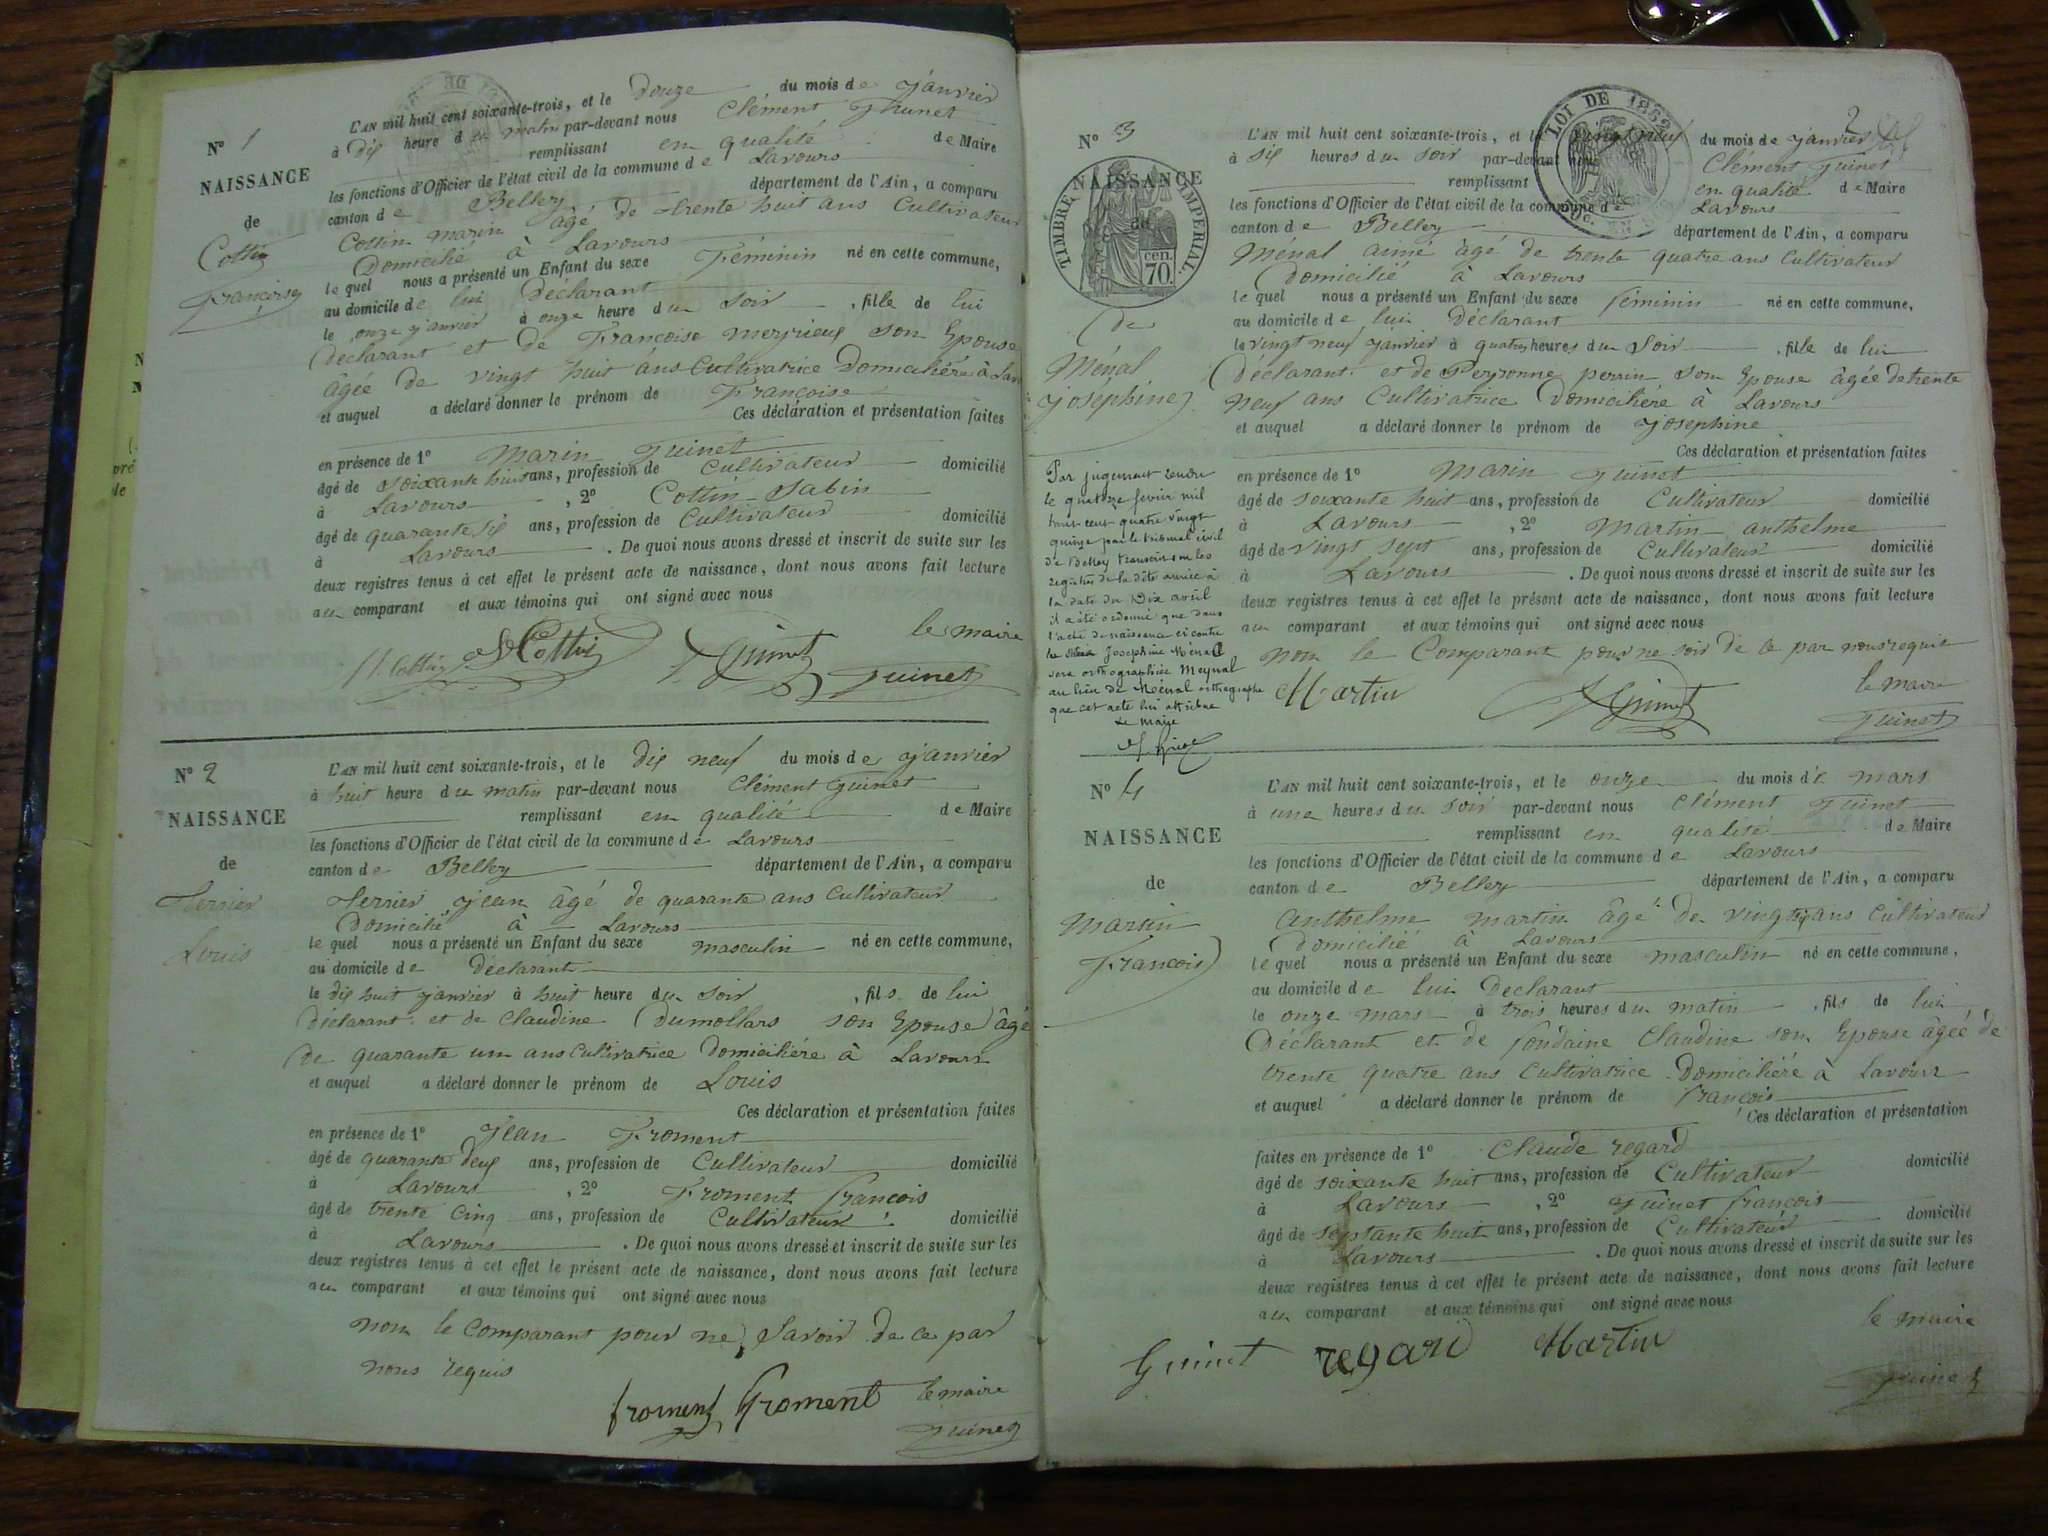 N° 1
NAISSANCE
de
Cottin
Françoise
L'AN mil huit cent soixante-trois, et le douze du mois de janvier
à dix heure du matin par-devant nous Clément Guinet
remplissant en qualité de Maire
les fonctions d'Officier de l'état civil de la commune de Lavours
canton de Belley département de l'Ain, a comparu
Cottin marin âgé de trente huit ans Cultivateur
Domicilié à Lavours
le quel nous a présenté un Enfant du sexe Féminin né en cette commune,
au domicile de lui Déclarant
le onze janvier à onze heure du Soir, fille de lui
Déclarant et de Françoise meyrieux son Epouse
âgée de vingt huit ans Cultivatrice Domiciliére à Lav
et auquel a déclaré donner le prénom de Françoise
Ces déclaration et présentation faites
en présence de 1° Marin Guinet
âgé de Soixante huit ans, profession de Cultivateur domicilié
à Lavours, 2° Cottin Sabin
âgé de quarante six ans, profession de Cultivateur domicilié
à Lavours. De quoi nous avons dressé et inscrit de suite sur les
deux registres tenus à cet effet le présent acte de naissance, dont nous avons fait lecture
au comparant et aux témoins qui ont signé avec nous
le maire
M. Cottin S Cottin Guinet Guinet
N° 2
NAISSANCE
de
Terrier
Louis
L'AN mil huit cent soixante-trois, et le dix neuf du mois de janvier
à huit heure du matin par-devant nous Clément Guinet
remplissant en qualité de Maire
les fonctions d'Officier de l'état civil de la commune de Lavours
canton de Belley département de l'Ain, a comparu
Terrier jean âgé de quarante ans Cultivateur
Domicilié à Lavours
le quel nous a présenté un Enfant du sexe masculin né en cette commune,
au domicile de Déclarant
le dix huit janvier à huit heure du Soir, fils de lui
Déclarant et de Claudine Dumollars son Epouse âgé
de quarante un ans Cultivatrice Domiciliére à Lavours
et auquel a déclaré donner le prénom de Louis
Ces déclaration et présentation faites
en présence de 1° Jean Froment
âgé de quarante deux ans, profession de Cultivateur domicilié
à Lavours, 2° Froment François
âgé de trente cinq ans, profession de Cultivateur domicilié
à Lavours. De quoi nous avons dressé et inscrit de suite sur les
deux registres tenus à cet effet le présent acte de naissance, dont nous avons fait lecture
au comparant et aux témoins qui ont signé avec nous
non le comparant pour ne Savoir de ce par
nous requis
froment Froment le maire
Guinet
2
N° 3
NAISSANCE
TIMBRE IMPERIAL
70 cen.
LOI DE 1862
de
Ménal
joséphine
L'AN mil huit cent soixante-trois, et le vingt neuf du mois de janvier
à six heures du soir par-devant nous Clément Guinet
remplissant en qualité de Maire
les fonctions d'Officier de l'état civil de la commune de Lavours
canton de Belley département de l'Ain, a comparu
Ménal aimé âgé de trente quatre ans Cultivateur
Domicilié à Lavours
le quel nous a présenté un Enfant du sexe féminin né en cette commune,
au domicile de lui Déclarant
le vingt neuf janvier à quatre heures du Soir, fille de lui
Déclarant et de Peyronne perrin son Epouse âgée de trente
neuf ans Cultivatrice Domiciliére à Lavours
et auquel a déclaré donner le prénom de josephine
Ces déclaration et présentation faites
en présence de 1° Marin Guinet
âgé de soixante huit ans, profession de Cultivateur domicilié
à Lavours, 2° Martin anthelme
âgé de vingt sept ans, profession de Cultivateur domicilié
à Lavours. De quoi nous avons dressé et inscrit de suite sur les
deux registres tenus à cet effet le présent acte de naissance, dont nous avons fait lecture
au comparant et aux témoins qui ont signé avec nous
non le Comparant pour ne soir de ce par nous requis
Martin Guinet le maire
Guinet
Par jugement rendu
le quatorze fevrier mil
huit cent quatre vingt
quinze par le tribunal civil
de Belley transcrit sur les
registres de la dite année à
la date du Dix avril
il a été ordonné que dans
l'acte de naissance ci contre
Joséphine Ménal
sera orthographiée Meynal
au lieu de Ménal orthographe
que cet acte lui attribue
Le maire
N° 4
NAISSANCE
de
Martin
François
L'AN mil huit cent soixante-trois, et le onze du mois de mars
à une heures du soir par-devant nous Clément Guinet
remplissant en qualité de Maire
les fonctions d'Officier de l'état civil de la commune de Lavours
canton de Belley département de l'Ain, a comparu
anthelme martin âgé de vingt ans Cultivateur
domicilié à Lavours
le quel nous a présenté un Enfant du sexe masculin né en cette commune,
au domicile de lui Declarant
le onze mars à trois heures du matin, fils de lui
Déclarant et de fondaine Claudine son Epouse âgée de
trente quatre ans Cultivatrice Domiciliéré à Lavours
et auquel a déclaré donner le prénom de françois
Ces déclaration et présentation
faites en présence de 1° Claude regard
âgé de soixante huit ans, profession de Cultivateur domicilié
à Lavours, 2° Guinet françois
âgé de septante huit ans, profession de Cultivateur domicilié
à Lavours. De quoi nous avons dressé et inscrit de suite sur les
deux registres tenus à cet effet le présent acte de naissance, dont nous avons fait lecture
au comparant et aux témoins qui ont signé avec nous
le maire
Guinet regard Martin
Guinet